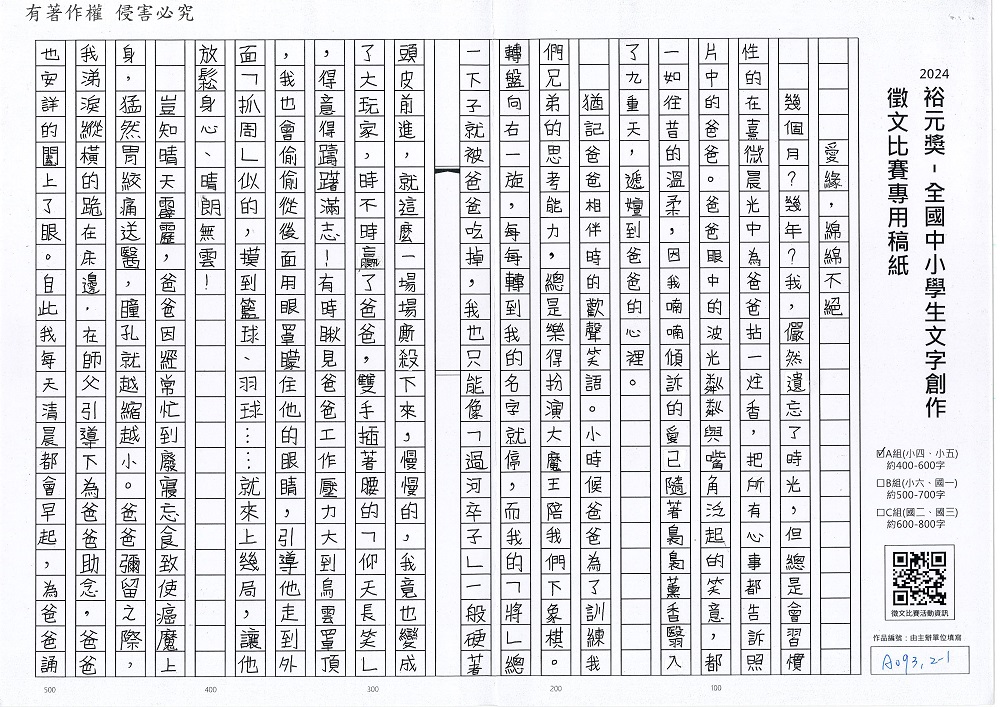 有著作權 侵害必究
2024
裕元獎-全國中小學生文字創作
徵文比賽專用稿紙
☑A組(小四、小五)
約400-600字
□B組(小六、國一)
約500-700字
□C組(國二、國三)
約600-800字
徵文比賽活動資訊
作品編號：由主辦單位填寫
A093,2-1
愛緣，綿綿不絕
幾個月？幾年？我，儼然遺忘了時光，但總是會習慣
性的在熹微晨光中為爸爸拈一炷香，把所有心事都告訴照
片中的爸爸。爸爸眼中的波光粼粼與嘴角泛起的笑意，都
一如往昔的溫柔，因我喃喃傾訴的愛已隨著裊裊薰香翳入
了九重天，遞嬗到爸爸的心裡。
猶記爸爸相伴時的歡聲笑語。小時候爸爸為了訓練我
們兄弟的思考能力，總是樂得扮演大魔王陪我們下象棋。
轉盤向右一旋，每每轉到我的名字就停，而我的「將」總
一下子就被爸爸吃掉，我也只能像「過河卒子」一般硬著
頭皮前進，就這麼一場場廝殺下來，慢慢的，我竟也變成
了大玩家，時不時贏了爸爸，雙手插著腰的「仰天長笑」
，得意得躊躇滿志！有時瞅見爸爸工作壓力大到烏雲罩頂
，我也會偷偷從後面用眼罩矇住他的眼睛，引導他走到外
面「抓周」似的，摸到籃球、羽球……就來上幾局，讓他
放鬆身心、晴朗無雲！
豈知晴天霹靂，爸爸因經常忙到廢寢忘食致使癌魔上
身，猛然胃絞痛送醫，瞳孔就越縮越小。爸爸彌留之際，
我涕淚縱橫的跪在床邊，在師父引導下為爸爸助念，爸爸
也安詳的闔上了眼。自此我每天清晨都會早起，為爸爸誦
100
200
300
400
500